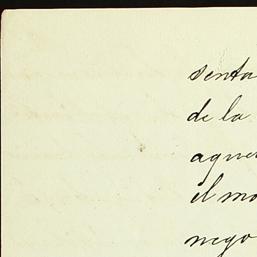 senta
de la
aque
el mo
nego